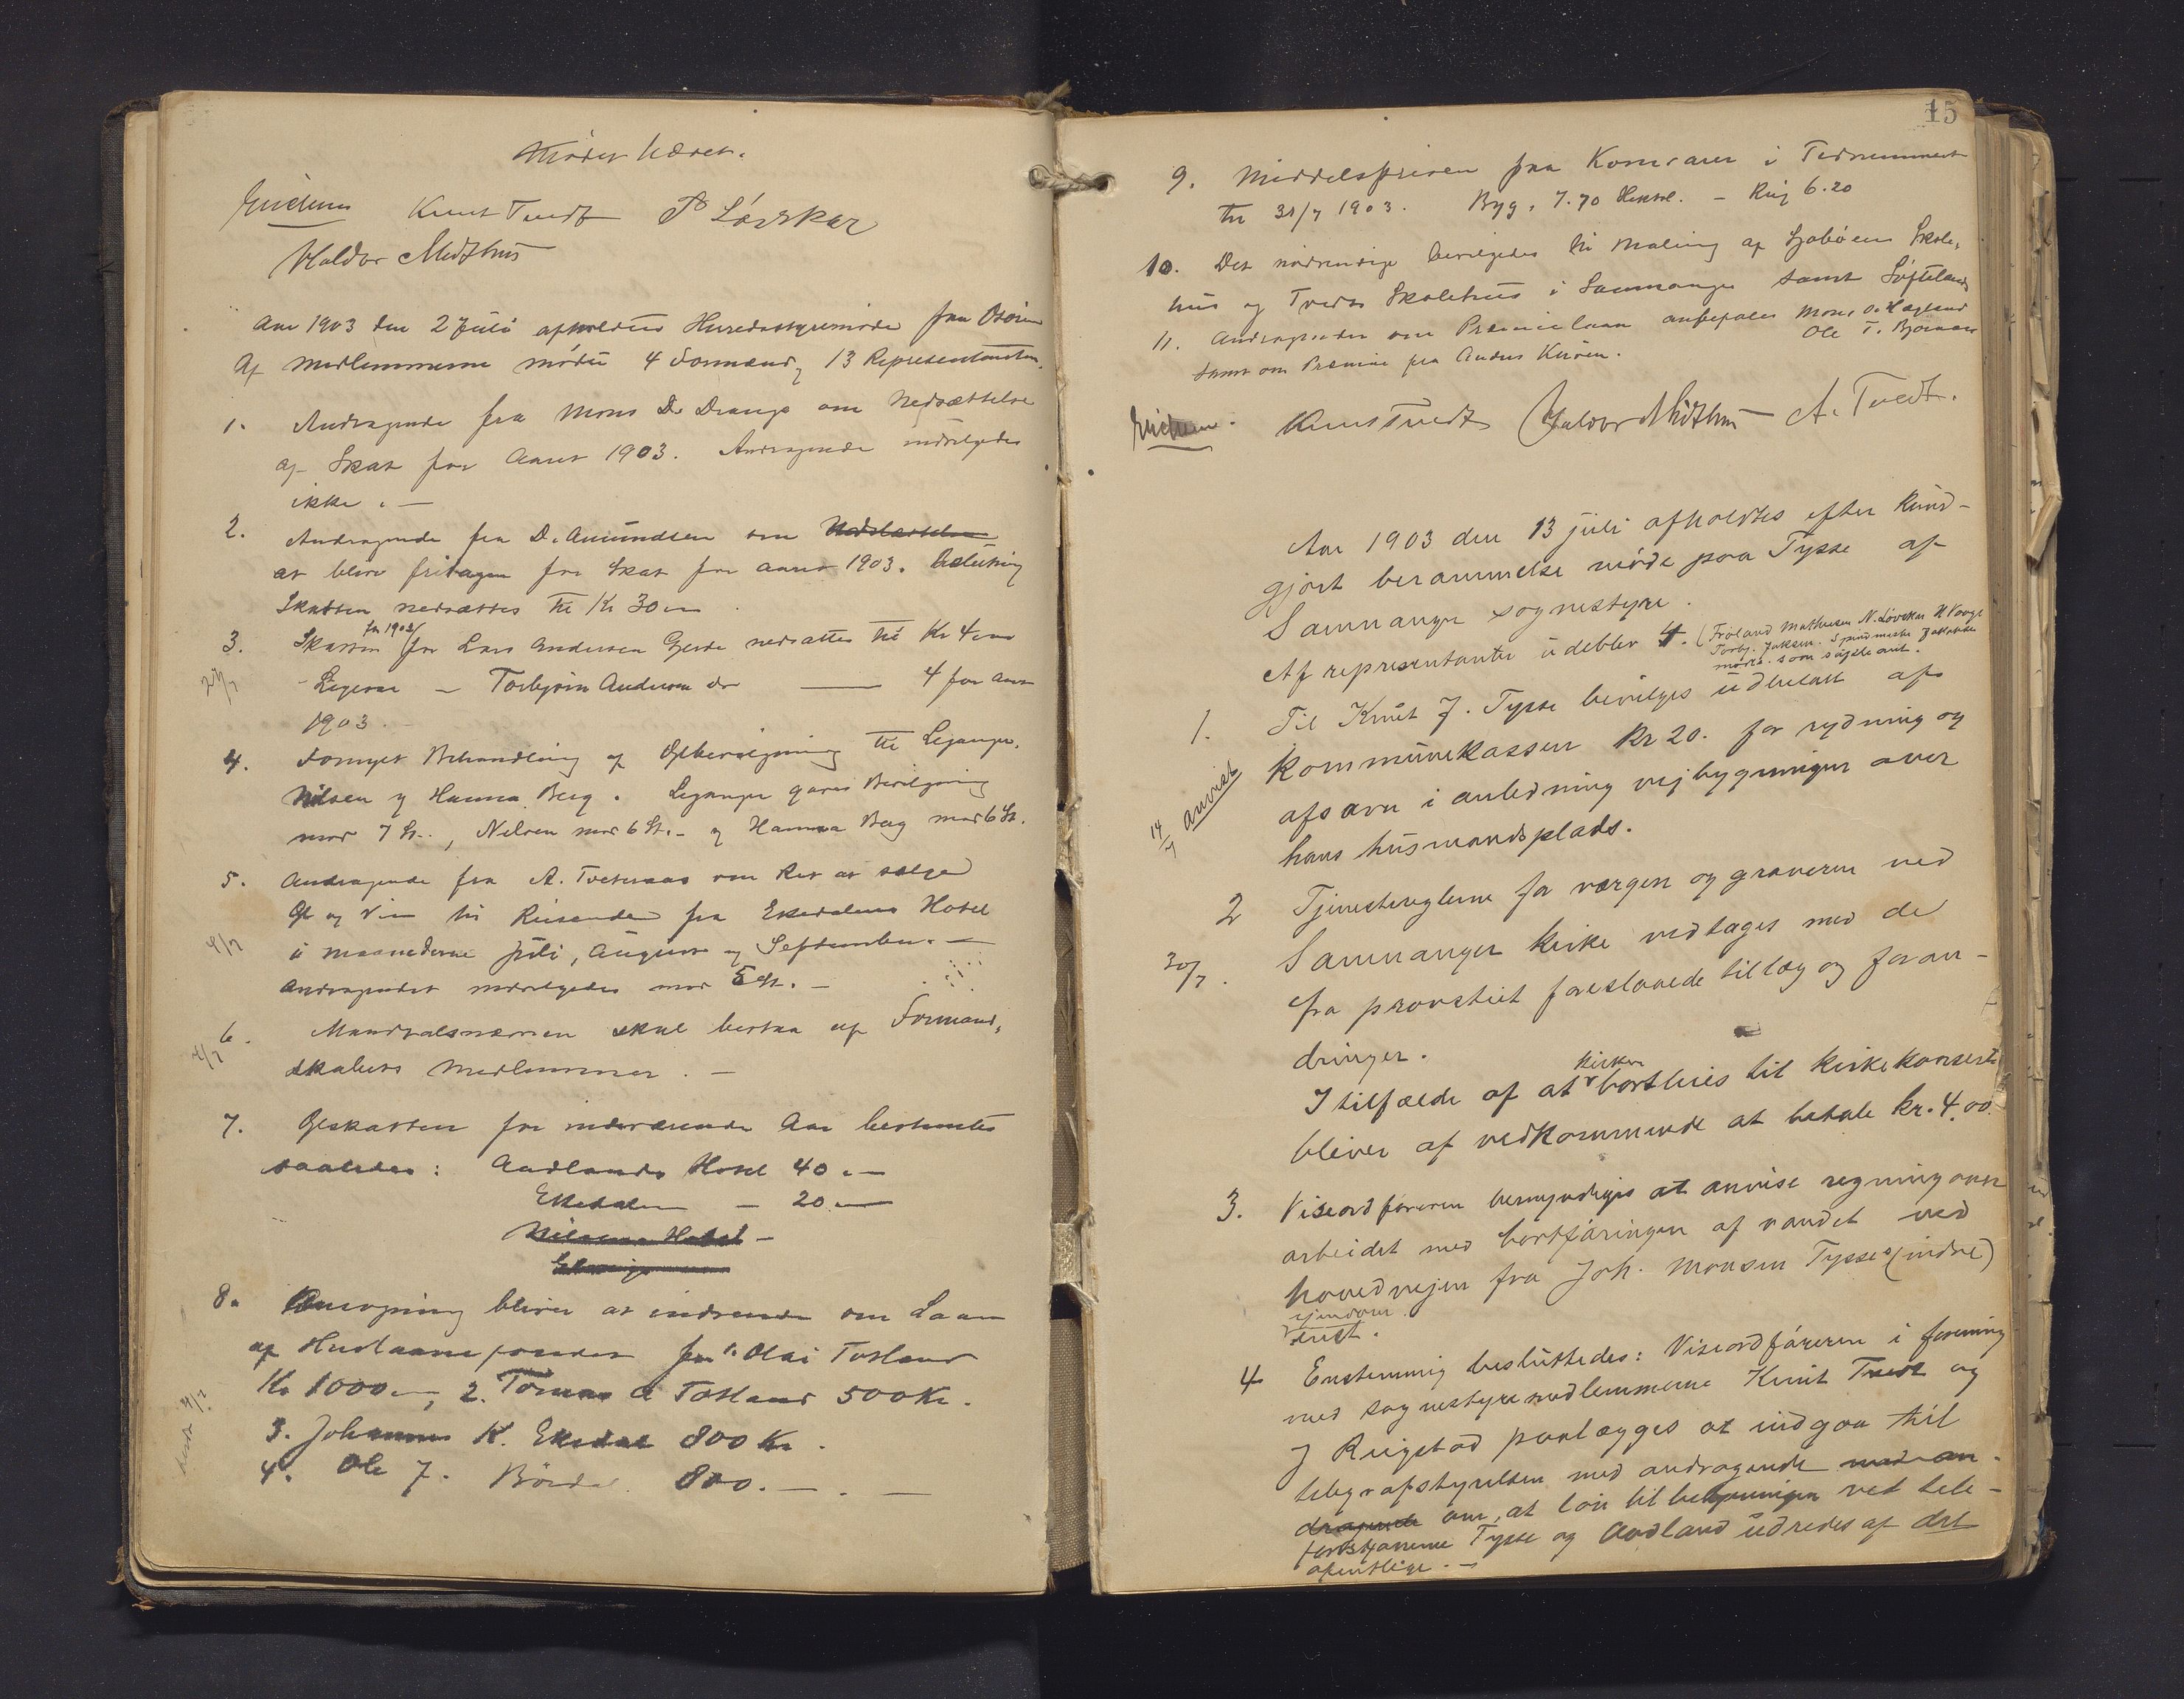 Mødet hævet.
Knut Tvedt P Løvskar
Haldor Midthus
Aar 1903 den 2 Juli afholdtes Heredsstyremøde paa Osøren
Af Medlemmerne mødte 4 Formænd, 13 Representanter.
1. Andragende fra Mons D. Drange om Nedsættelse
af Skat for Aaret 1903. Andragende indvilgedes
ikke. —
2. Andragende fra D. Amundsen om Nedsættelse
at blive fritagen for Skat for aaret 1903. Beslutning
Skatten nedsættes til Kr 30
3. Skatten for 1903 for Lars Andersen Gjerde nedsattes til Kr 4
Ligesaa — Torbjørn Andersen do — 4 for Aaret
1903.
4. Fornyet Behandling af Ølbevilgning til Leganger,
Nilsen og Hanna Berg. Leganger gaves Bevilgning
mod 7 St., Nilsen mod 6 St. — og Hanna Berg mod 6 St.
5. Andragende fra A. Tveteraas om Ret at sælge
Øl og Vin til Reisende fra Ekedalens Hotel
i maanederne juli, August og September. —
Andragendet indvilgedes mod 5 St. —
4/7
6. Mandtalsnævnen skal bestaa af Formand,
skabets Medlemmer. —
4/7
7. Ølskatten for indeværende Aar bestemtes
saaledes: Aadlands Hotel 40. —
Ekedalen — 20. —
Nilsens Hotel —
8. Ansøgning bliver at indsende om Laan
af Huslaanefondet for 1. Olai Tøsland
Kr 1000 —, 2. Tomas A Tøsland 500 Kr.
3. Johannes K. Ekedal 800 Kr.
4. Ole J. 800. —
15
9. Middelsprisen paa Kornvarer i Tidsrummet
til 31/7 1903. Byg. 7.70 — Rug 6.20
10. Det nødvendige bevilgedes til Maling af Skole,
hus og Tvedt Skolehus i Samnanger samt Søfteland
11. Andragender om Præmielaan anbefales Mons O. Hagland
Ole T.
samt om Præmie fra Anders Kuven.
Knut Tvedt Haldor Midthus A. Tvedt.
Aar 1903 den 13 juli afholdtes efter kund-
gjort berammelse møde paa Tysse af
Samnanger sognestyre.
Af representanter udeblev 4. (Frøland Mathiesen N. Løvskar H Vaage
Torbj. Jaksen.
mødte som supleant.
1. Til Knut J. Tysse bevilges udbetalt af
kommunekassen kr 20. for rydning og
afsavn i anledning vejbygningen over
hans husmandsplads.
14/7 anvist
2 Tjenestereglerne for værgen og graveren ved
Samnanger kirke vedtages med de
fra provstiet foreslaaede tillæg og foran-
dringer.
30/7.
I tilfælde af at kirken bortleies til kirkekonsert
bliver af vedkommende at betale kr. 4.00
3. Viseordføreren bemyndiges at anvise regning over
arbeidet med bortføringen af vandet ved
hovedvejen fra Joh. Monsen Tysses (indre)
ejendom
4 Enstemmig besluttedes: Viseordføreren i forening
med sognestyremedlemmerne Knut Tvedt og
J Reigstad paalægges at indgaa til
telegrafstyrelsen med andragende med an-
dragende om, at løn til betjeningen ved tele-
fonstationerne Tysse og Aadland udredes af det
ofentlige. —